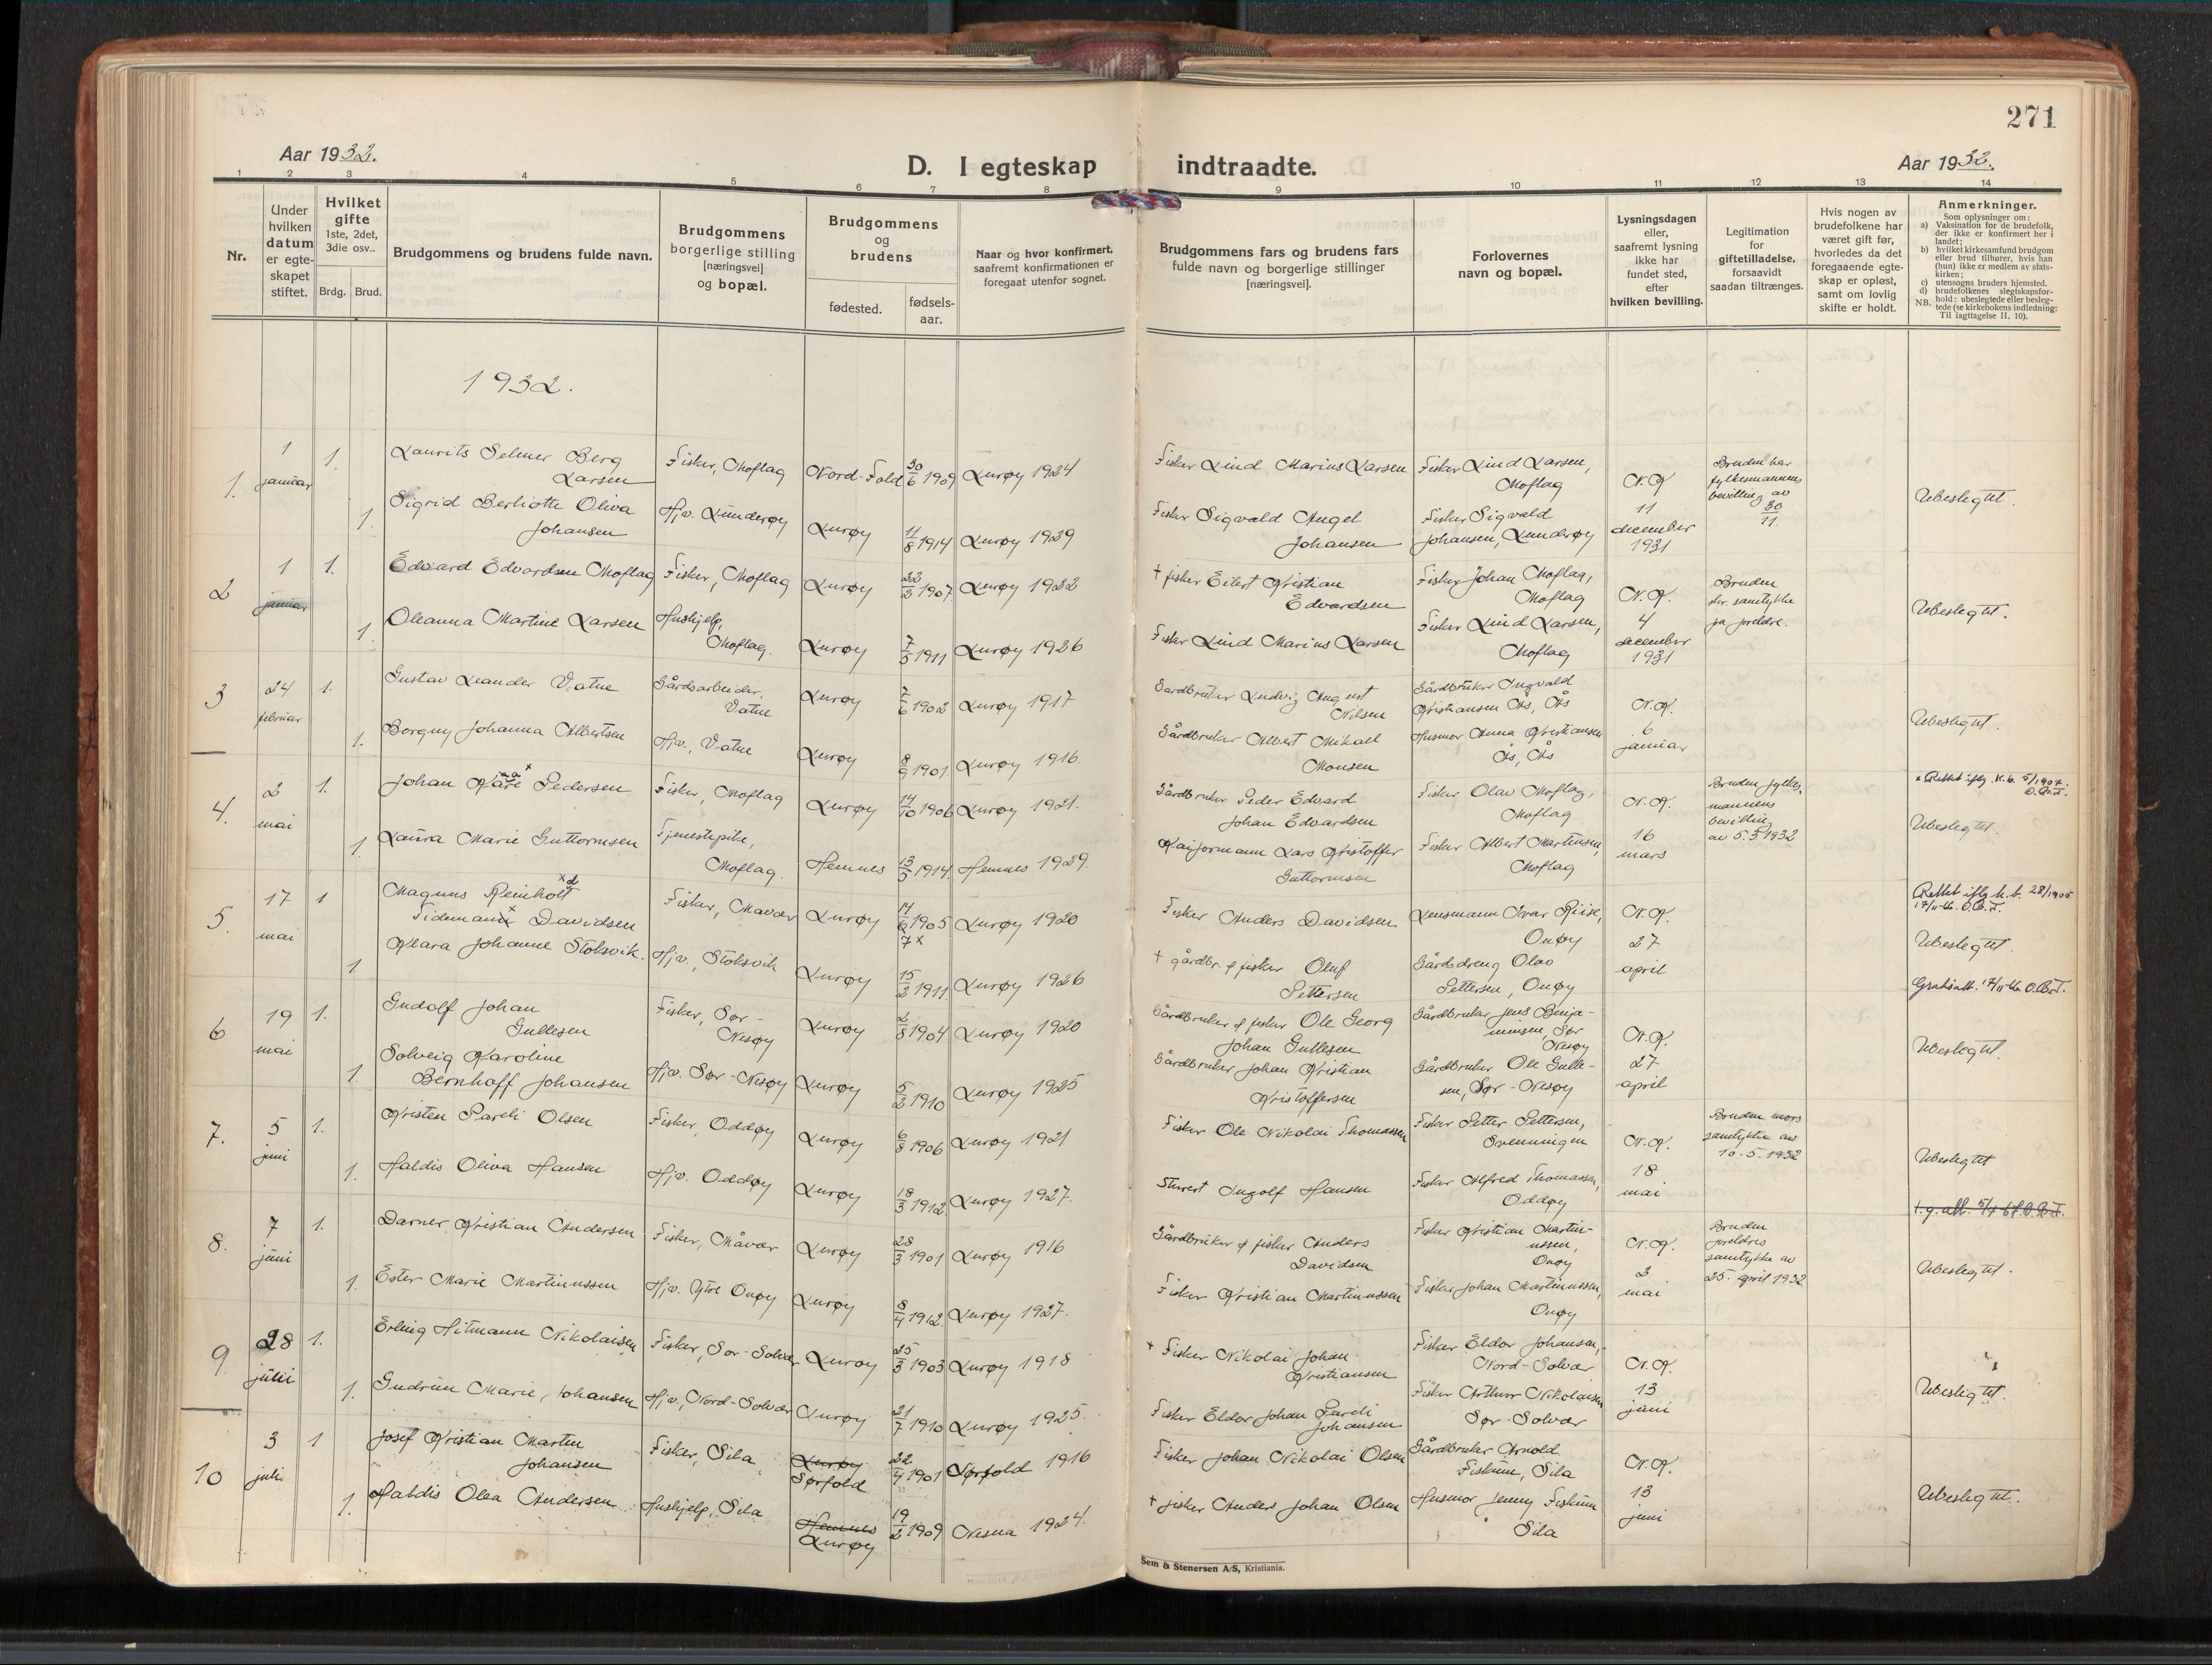 271
Aar 1932.
D. I egteskap indtraadte.
Aar 1932.
1 2 3 4 5 6 7 8 9 10 11 12 13 14
Nr.
Under hvilken datum er egte-skapet stiftet.
Hvilket gifte 1ste, 2det, 3die osv..
Brdg. Brud.
Brudgommens og brudens fulde navn.
Brudgommens borgerlige stilling [næringsvei] og bopæl.
Brudgommens og brudens
fødested.
fødsels-aar.
Naar og hvor konfirmert, saafremt konfirmationen er foregaat utenfor sognet.
Brudgommens fars og brudens fars fulde navn og borgerlige stillinger [næringsvei].
Forlovernes navn og bopæl.
Lysningsdagen eller, saafremt lysning ikke har fundet sted, efter hvilken bevilling.
Legitimation for giftetilladelse, forsaavidt saadan tiltrænges.
Hvis nogen av brudefolkene har været gift før, hvorledes da det foregaaende egte-skap er opløst, samt om lovlig skifte er holdt.
Anmerkninger.
Som oplysninger om:
a) Vaksination for de brudefolk, der ikke er konfirmert her i landet;
b) hvilket kirkesamfund brudgom eller brud tilhører, hvis han (hun) ikke er medlem av stats-kirken;
c) utensogns bruders hjemsted.
d) brudefolkenes slegtskapsfor-hold: ubeslegtede eller besleg-tede (se kirkebokens indledning: Til iagttagelse II. 10).
NB.
1932.
1. 1 januar 1. Laurits Selmer Berg Larsen Fisker, Moflag Nord-Fold 30/6 1909 Lurøy 1924 Fisker Lind Marius Larsen Fisker Lind Larsen, Moflag N.K. 11 december 1931 Bruden har fylkesmannens bevilling av 30/11. Ubeslegtet.
1. Sigrid Berliotte Oliva Johansen Hjv. Lunderøy Lurøy 11/8 1914 Lurøy 1929 Fisker Sigvald Angel Johansen Fisker Sigvald Johansen, Lunderøy
2 1 januar 1. Edvard Edvardsen Moflag Fisker, Moflag Lurøy 22/2 1907 Lurøy 1922 † fisker Eilert Kristian Edvardsen Fisker Johan Moflag, Moflag N.K. 4 december 1931 Bruden skr. samtykke fra foreldre. Ubeslegtet.
1. Oleanna Martine Larsen Hushjelp, Moflag. Lurøy 7/5 1911 Lurøy 1926 Fisker Lind Marius Larsen Fisker Lind Larsen, Moflag
3 24 februar 1. Gustav Leander Vatne Gårdsarbeider, Vatne Lurøy 7/6 1902 Lurøy 1917 Gardbruker Ludvig August Nilsen Gårdbruker Ingvald Kristiansen Ås, Ås N.K. 6 januar Ubeslegtet.
1. Borgny Johanna Albertsen Hjv., Vatne Lurøy 8/9 1901. Lurøy 1916. Gårdbruker Albert Mikael Monsen Husmor Anna Kristiansen Ås, Ås
4. 2 mai 1. Johan Kåre Pedersen Fisker, Moflag Lurøy 14/10 1906 Lurøy 1921. Gårdbruker Peder Edvard Johan Edvardsen Fisker Olav Moflag, Moflag N.K. 16 mars Bruden fylkes-mannens bevilling av 5.3.1932 × Rettet iflg. k.b. 5/1907. O.B.T. Ubeslegtet.
1. Laura Marie Guttormsen Tjenestepike, Moflag. Hemnes 13/5 1914. Hemnes 1929. Kaiformann Lars Kristoffer Guttormsen Fisker Albert Martinsen, Moflag
5. 17 mai 1 Magnus Reinholt Tidemann Davidsen Fisker, Mavær Lurøy 14/6 1905 7× Lurøy 1920 Fisker Anders Davidsen Lensmann Ivar Riise, Onøy N.K. 27 april Rettet iflg k.b. 28/1905 17/11-66. O.B.T. Ubeslegtet.
1 Klara Johanne Stoksvik. Hjv., Stoksvik Lurøy 15/2 1911. Lurøy 1926 † gårdbr. & fisker Oluf Pettersen Gårdsdreng Olav Pettersen, Onøy
6 19 mai 1. Gudolf Johan Gullesen Fisker, Sør-Nesøy Lurøy 2/8 1904 Lurøy 1920 Gårdbruker & fisker Ole Georg Johan Gullesen Gårdbruker Jens Benja-minsen, Sør Nesøy N.K. 27 april 17/11-66 O.B.T. Ubeslegtet.
1. Solveig Karoline Bernhoff Johansen Hjv. Sør-Nesøy Lurøy 5/2 1910 Lurøy 1925 Gårdbruker Johan Kristian Kristoffersen Gårdbruker Ole Gulle-sen, Sør-Nesøy
7. 5 juni 1. Kristen Pareli Olsen Fisker, Oddøy Lurøy 6/8 1906 Lurøy 1921 Fisker Ole Nikolai Thomassen Fisker Petter Pettersen, Svenningen N.K. 18 mai Bruden mors samtykke av 10.5.1932 Ubeslegtet
1. Haldis Oliva Hansen Hjv. Oddøy Lurøy 18/3 1912 Lurøy 1927. Stuert Ingolf Hansen Fisker Alfred Thomassen, Oddøy
8. 7 juni 1. Darner Kristian Andersen Fisker, Måvær Lurøy 28/3 1901 Lurøy 1916 Gårdbruker & fisker Anders Davidsen Fisker Kristian Martin-ussen, Onøy N.K. 2 mai Bruden foreldres samtykke av 25. april 1932 Ubeslegtet.
1. Ester Marie Martinussen Hjv. Ytre Onøy Lurøy 8/4 1912. Lurøy 1927. Fisker Kristian Martinussen Fisker Johan Martinussen, Onøy
9 28 juli 1. Erling Hitmann Nikolaisen Fisker, Sør-Solvær Lurøy 25/3 1903 Lurøy 1918 † Fisker Nikolai Johan Kristiansen Fisker Eldor Johansen, Nord-Solvær N.K. 13 juni Ubeslegtet.
1. Gudrun Marie Johansen Hjv., Nord-Solvær Lurøy 21/7 1910 Lurøy 1925. Fisker Eldor Johan Pareli Johansen Fisker Arthur Nikolaisen Sør-Solvær
10 3 juli 1 Josef Kristian Martin Johansen Fisker, Sila Lurøy Sørfold 22/4 1901 Sørfold 1916 Fisker Johan Nikolai Olsen Gårdbruker Arnold Fiskum, Sila N.K. 13 juni Ubeslegtet.
1. Haldis Olea Andersen Hushjelp, Sila Hemnes Lurøy 19/2 1909 Nesna 1924. † fisker Anders Johan Olsen Husmor Jenny Fiskum Sila
Sem & Stenersen A/S, Kristiania.